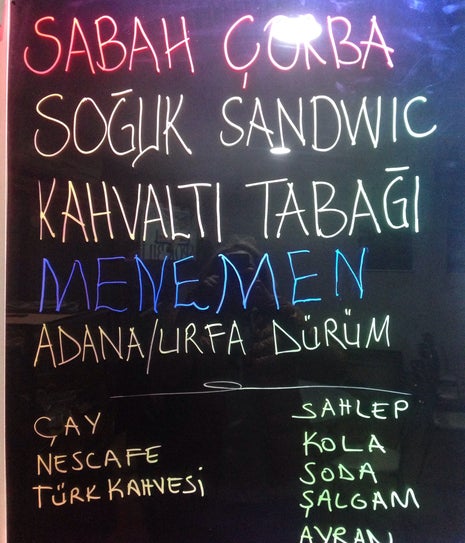 SABAH ÇORBA
SOĞUK SANDWIC
KAHVALTI TABAĞI
MENEMEN
ADANA/URFA DÜRÜM
ÇAY
NESCAFE
TÜRK KAHVESİ
SAHLEP
KOLA
SODA
ŞALGAM
AYRAN